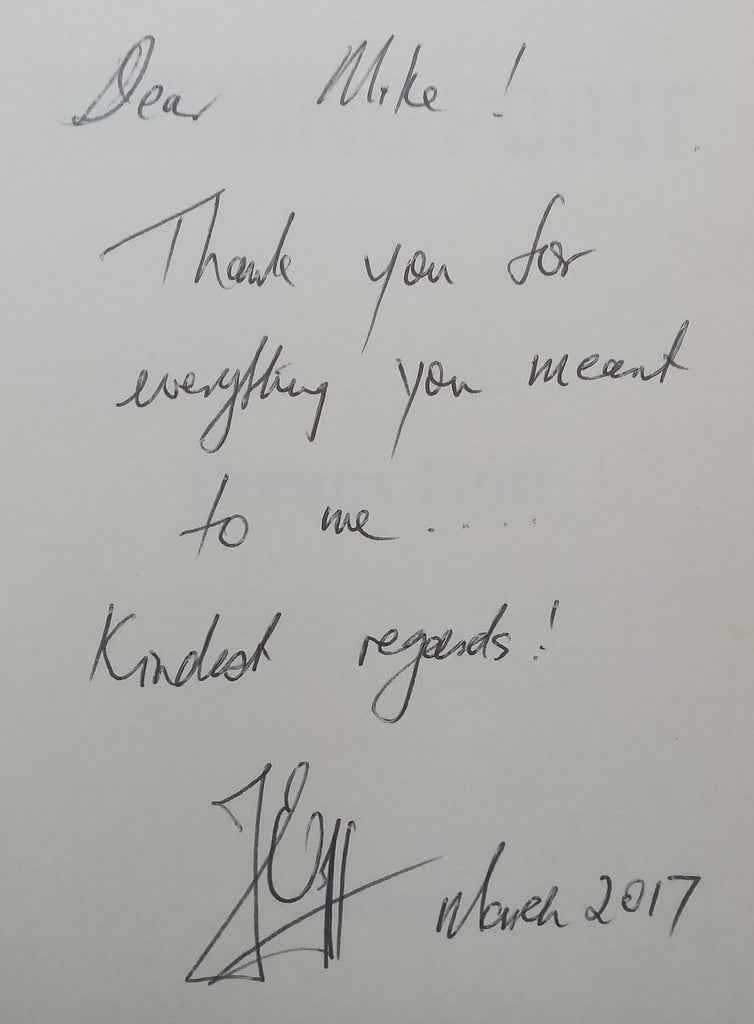 Dear Mike!
Thank you for
everything you meant
to me.....
Kindest regards!
March 2017